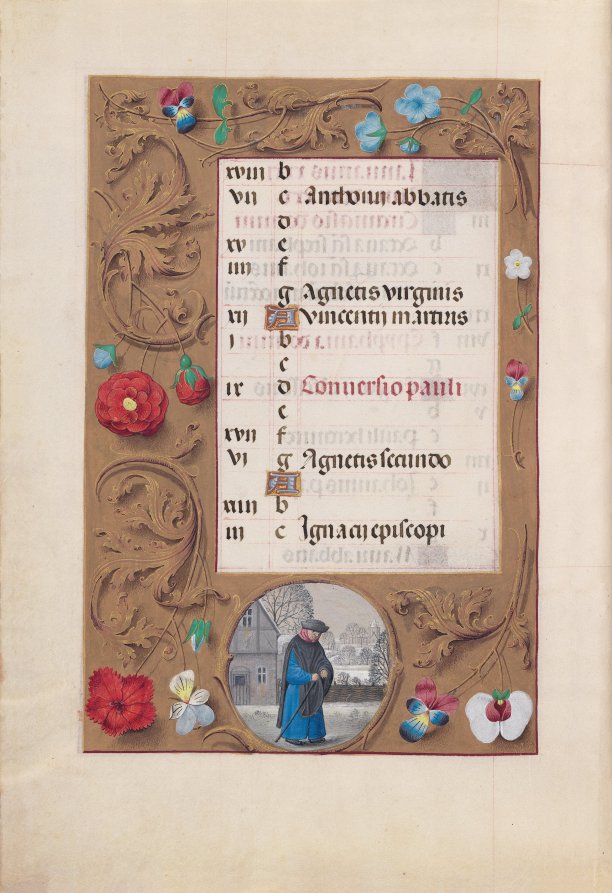 xviii b
vii c Anthonii abbatis
d
xv e
iiii f
g Agnetis virginis
xii A Vincentii martiris
i b
c
ix d Conversio pauli
e
xvii f
vi g Agnetis secundo
A
xiiii b
iii c Ignacii episcopi